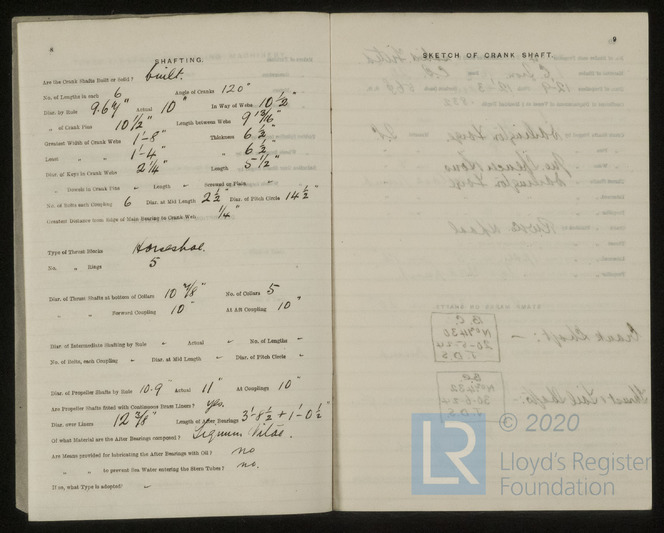 8
SHAFTING.
Are the Crank Shafts Built or Solid? built.
No. of Lengths in each 6 Angle of Cranks 120°
Diar. by Rule 9.67" Actual 10" In Way of Webs 10 1/2"
„ of Crank Pins 10 1/2" Length between Webs 9 13/16"
Greatest Width of Crank Webs 1'-8" Thickness 6 1/2"
Least „ „ 1'-4" „ 6 1/2"
Diar. of Keys in Crank Webs 2 1/4" Length 5 1/2"
„ Dowels in Crank Pins - Length - Screwed or Plain -
No. of Bolts each Coupling 6 Diar. at Mid Length 2 1/2" Diar. of Pitch Circle 14 1/2"
Greatest Distance from Edge of Main Bearing to Crank Web 1/4"
Type of Thrust Blocks Horseshoe.
No. „ Rings 5
Diar. of Thrust Shafts at bottom of Collars 10 7/8" No. of Collars 5
„ „ Forward Coupling 10" At Aft Coupling 10"
Diar. of Intermediate Shafting by Rule - Actual - No. of Lengths -
No. of Bolts, each Coupling - Diar. at Mid Length - Diar. of Pitch Circle -
Diar. of Propeller Shafts by Rule 10.9" Actual 11" At Couplings 10"
Are Propeller Shafts fitted with Continuous Brass Liners? yes.
Diar. over Liners 12 3/8" Length of After Bearings 3'-8 1/2" + 1'-0 1/2"
Of what Material are the After Bearings composed? Lignum Vitae.
Are Means provided for lubricating the After Bearings with Oil? no
„ „ to prevent Sea Water entering the Stern Tubes? no.
If so, what Type is adopted? -
9
SKETCH OF CRANK SHAFT.
© 2020
LR
Lloyd's Register
Foundation